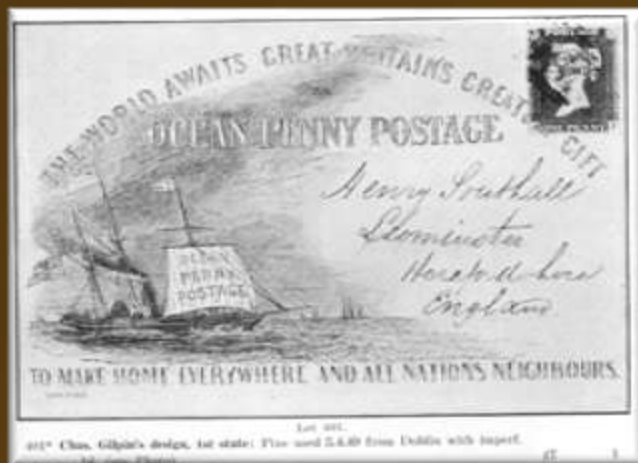 THE WORLD AWAITS GREAT BRITAIN'S GREATEST GIFT
OCEAN PENNY POSTAGE
ONE PENNY
Henry Southall
Leominster
England
OCEAN
PENNY
POSTAGE
TO MAKE HOME EVERYWHERE AND ALL NATIONS NEIGHBOURS.
Lot 401.
401* Chas. Gilpin's design, 1st state: Fine used 5.4.49 from Dublin with imperf.